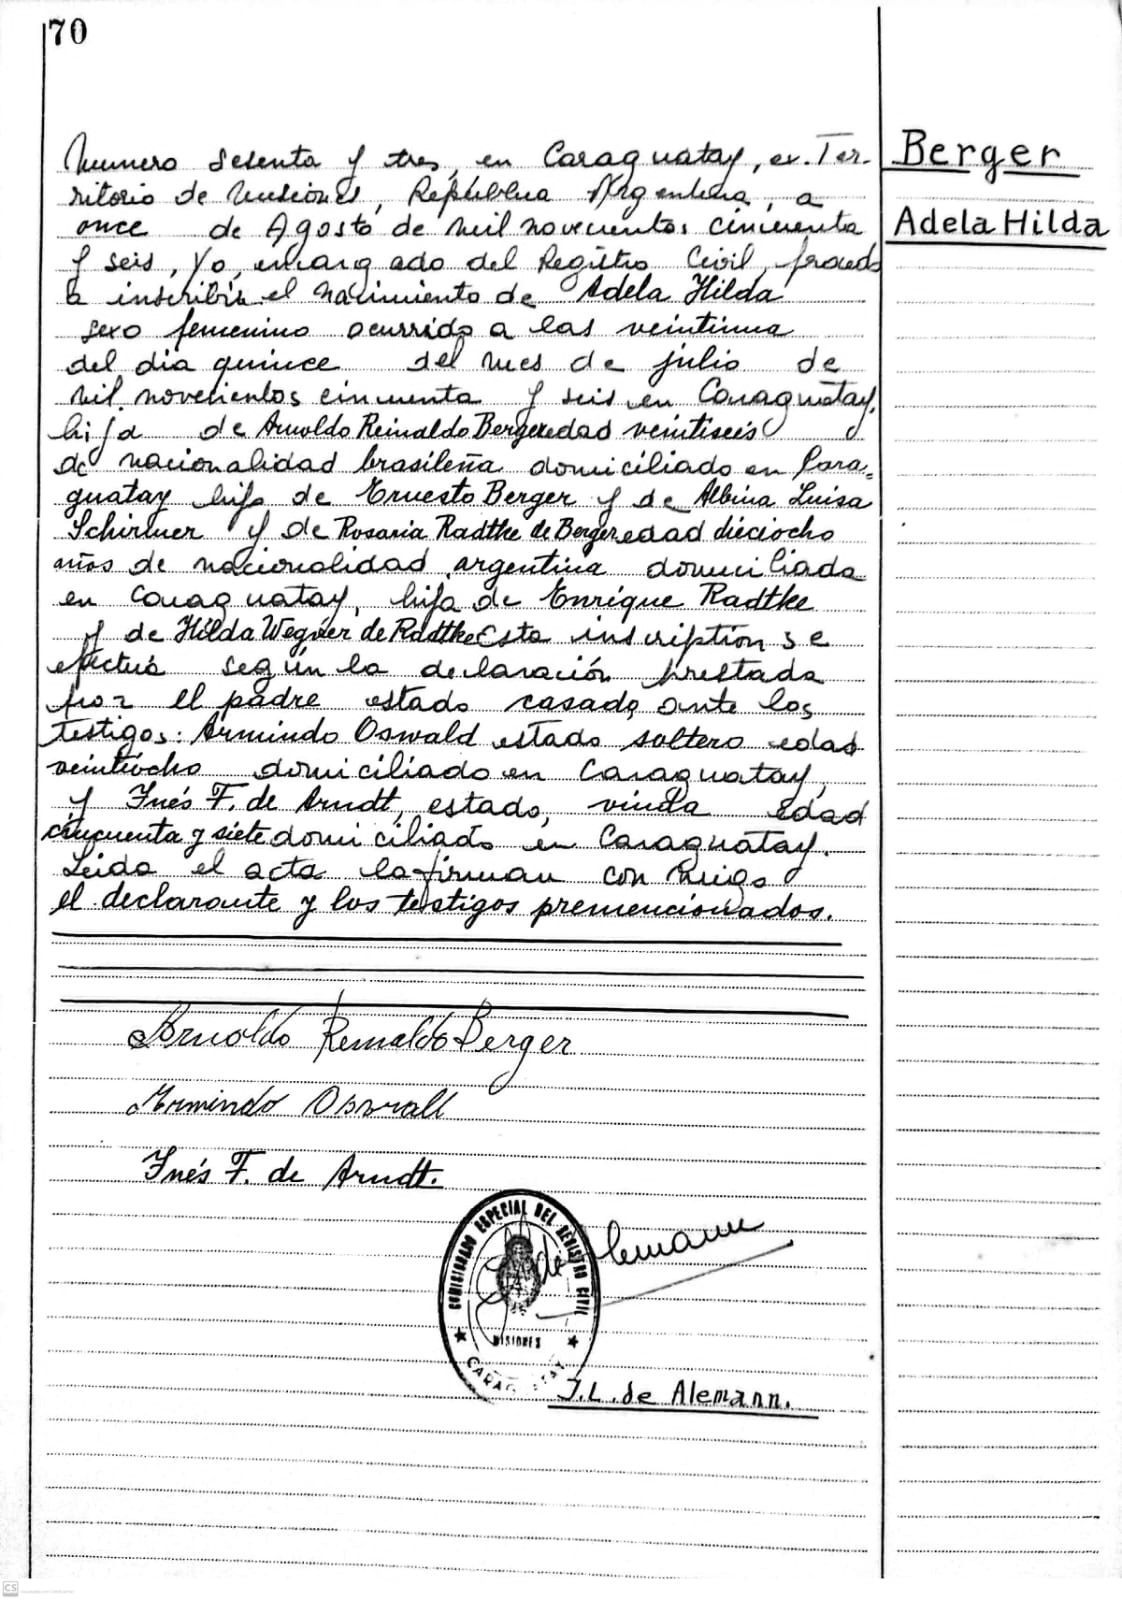 70
Berger
Adela Hilda
Numero sesenta y tres, en Caraguatay, ex. Ter-
ritorio de Misiones, República Argentina, a
once de Agosto de mil novecientos cincuenta
y seis, Yo, encargado del Registro Civil, procedo
a inscribir el nacimiento de Adela Hilda
sexo femenino ocurrido a las veintiuna
del dia quince del mes de julio de
mil novecientos cincuenta y seis en Caraguatay,
hija de Arnoldo Reinaldo Berger edad veintiseis
de nacionalidad brasileña domiciliado en Cara-
guatay hijo de Ernesto Berger y de Albina Luisa
Schirmer y de Rosaria Radtke de Berger edad dieciocho
años de nacionalidad argentina domiciliada
en Caraguatay, hija de Enrique Radtke
y de Hilda Wegner de Radtke Esta inscription se
efectuó según la declaración prestada
por el padre estado casado, ante los
testigos: Armindo Oswald estado soltero edad
veintiocho domiciliado en Caraguatay,
y Inés F. de Arndt, estado, viuda edad
cincuenta y siete domiciliado en Caraguatay.
Leida el acta la firman con migo
el declarante y los testigos premencionados.
Arnoldo Reinaldo Berger
Armindo Oswald
Inés F. de Arndt.
COMISIONADO ESPECIAL DEL REGISTRO CIVIL
de Alemann
MISIONES
CARAGUATAY
J. L. de Alemann.
CS